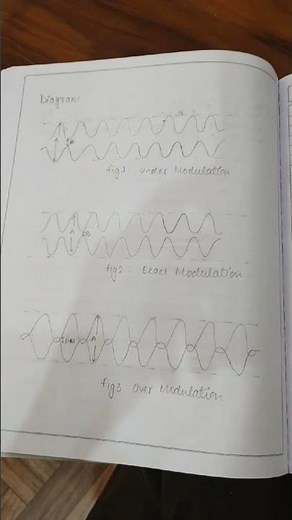 Diagram
fig1 under Modulation
fig2 : Exact Modulation
fig3 over Modulation